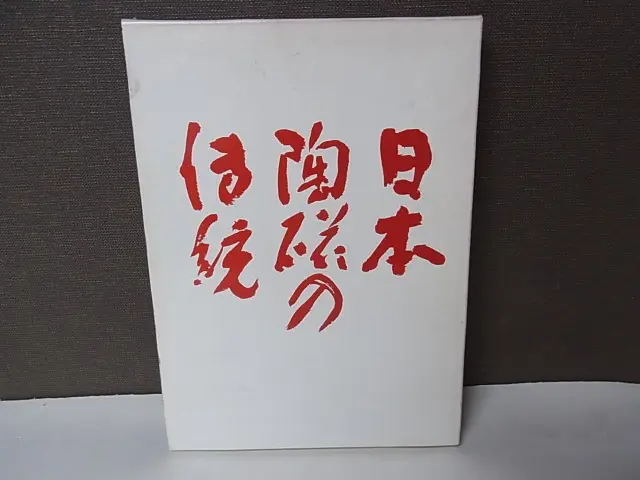 日本
陶磁の
伝統